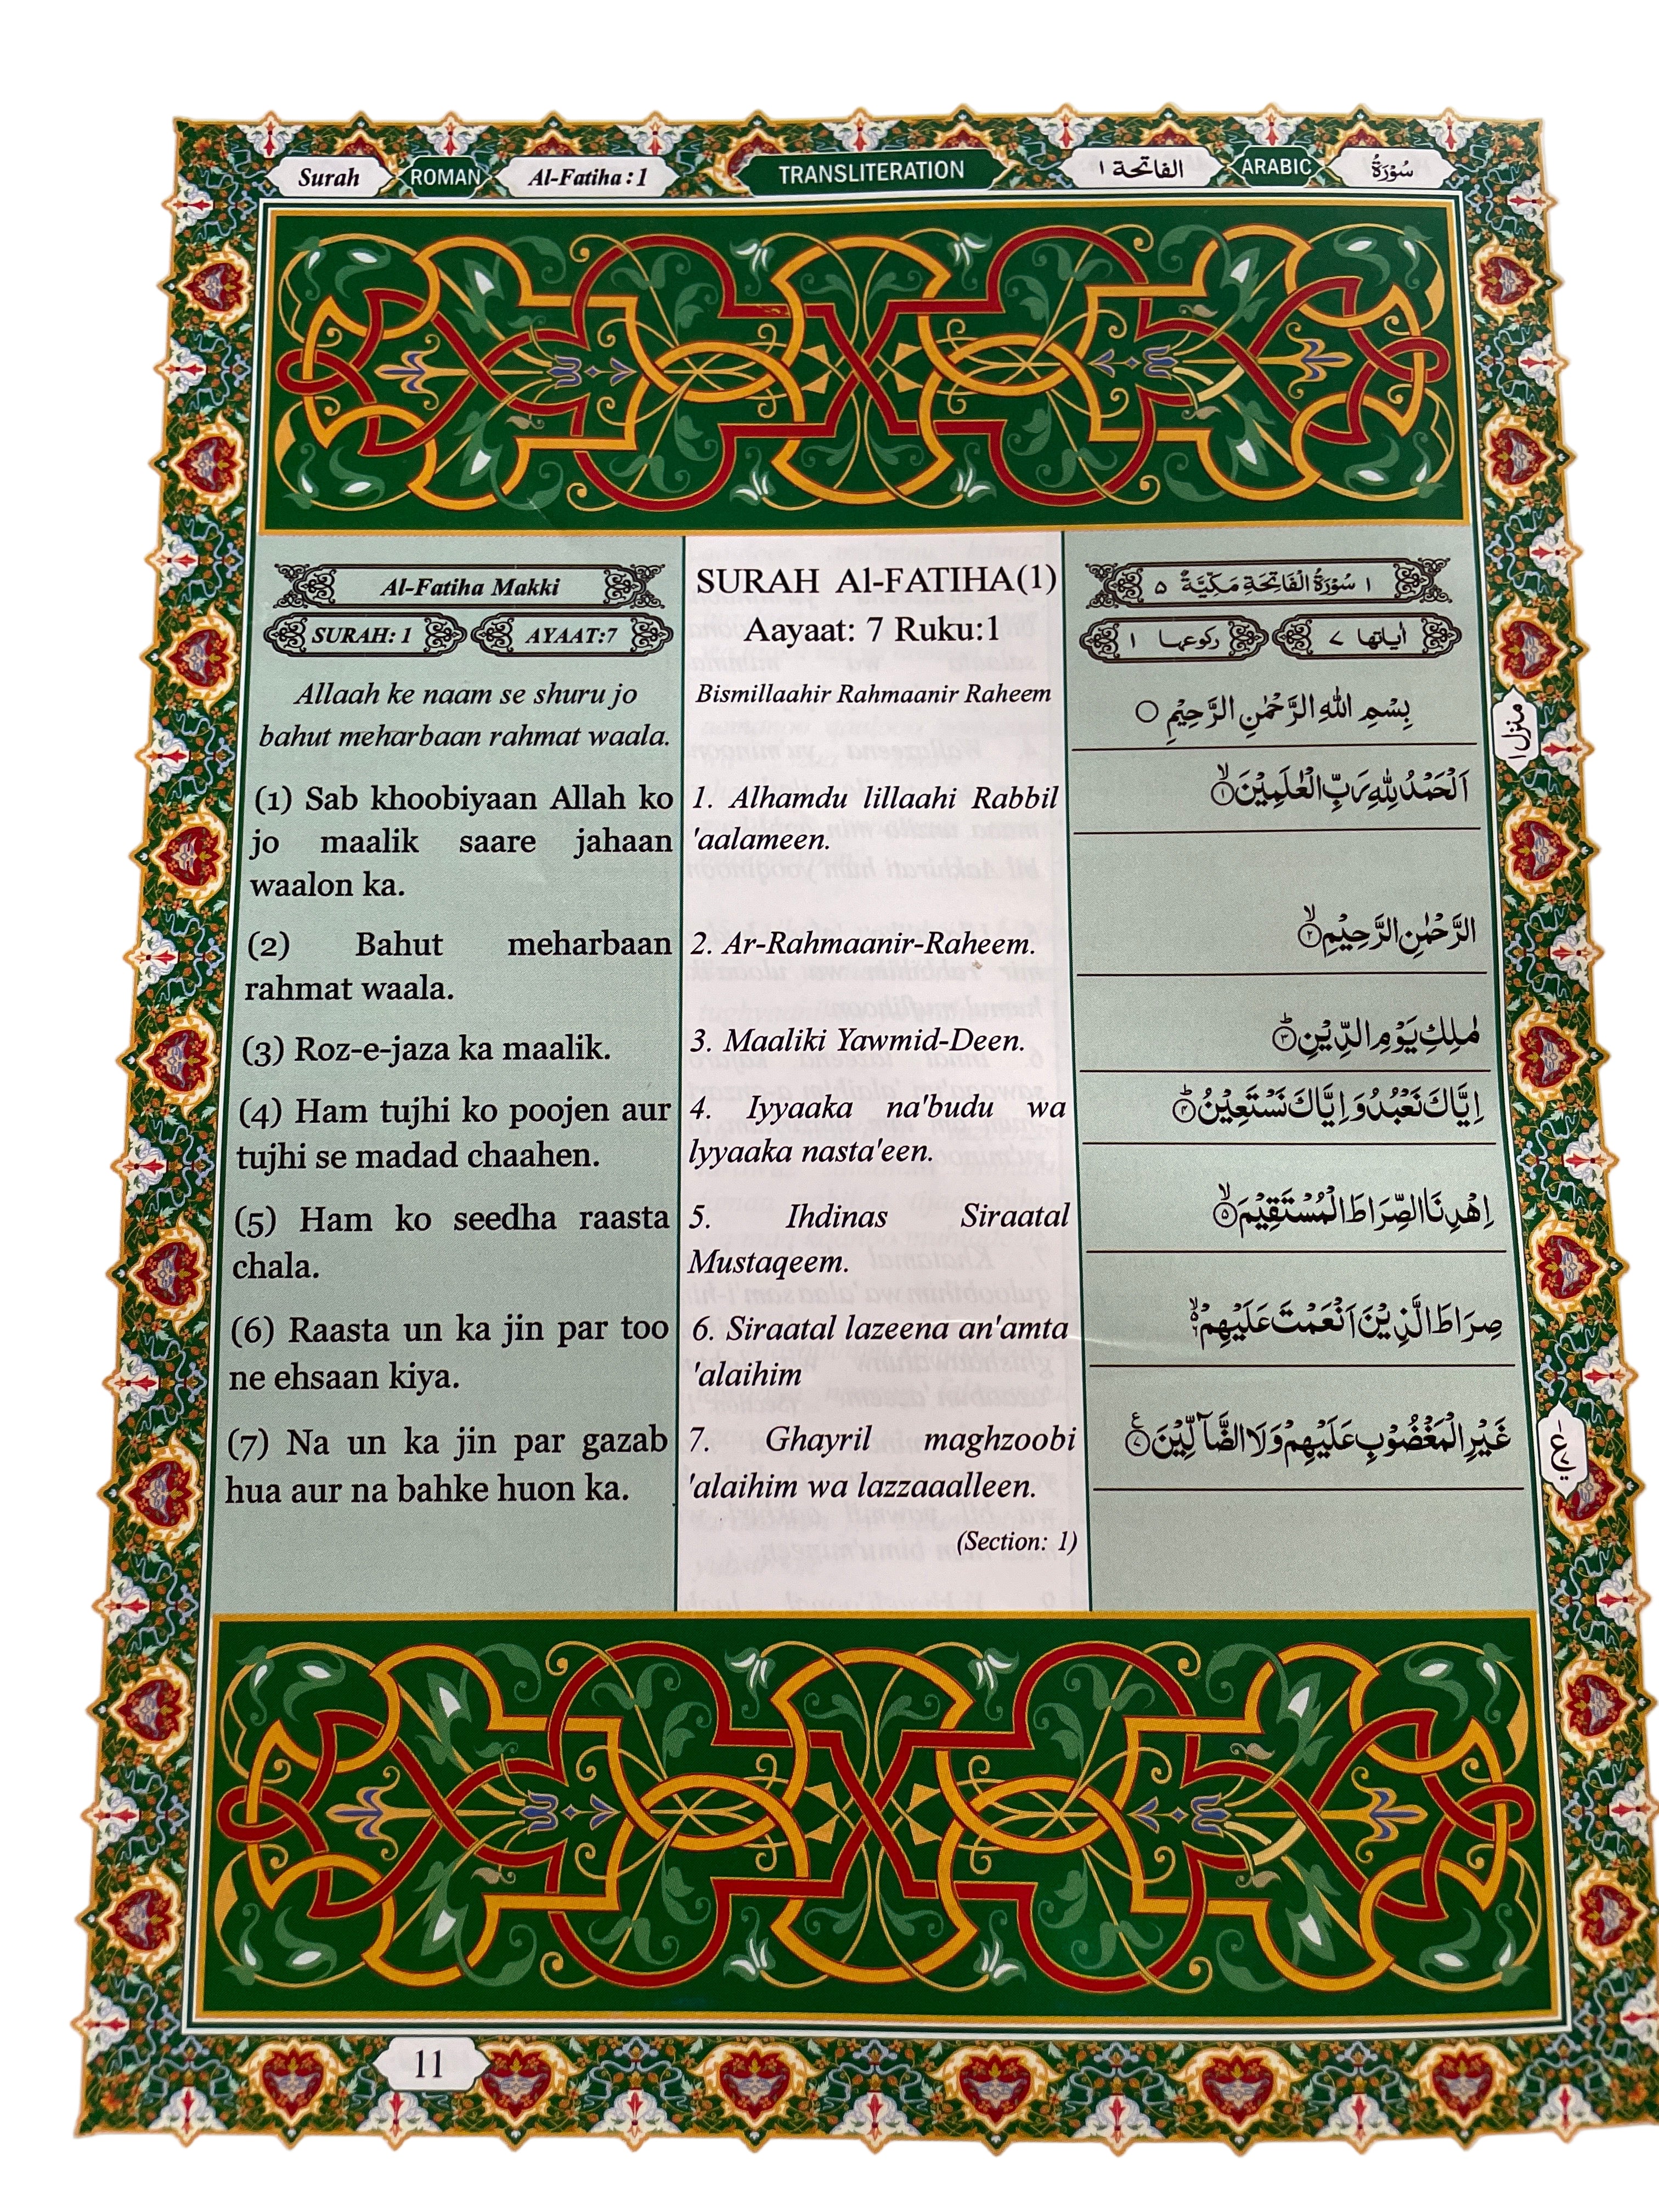 Surah ROMAN Al-Fatiha : 1 TRANSLITERATION الفاتحة ١ ARABIC سُوْرَةُ
Al-Fatiha Makki
SURAH: 1 AYAAT:7
Allaah ke naam se shuru jo
bahut meharbaan rahmat waala.
(1) Sab khoobiyaan Allah ko
jo maalik saare jahaan
waalon ka.
(2) Bahut meharbaan
rahmat waala.
(3) Roz-e-jaza ka maalik.
(4) Ham tujhi ko poojen aur
tujhi se madad chaahen.
(5) Ham ko seedha raasta
chala.
(6) Raasta un ka jin par too
ne ehsaan kiya.
(7) Na un ka jin par gazab
hua aur na bahke huon ka.
SURAH Al-FATIHA(1)
Aayaat: 7 Ruku:1
Bismillaahir Rahmaanir Raheem
1. Alhamdu lillaahi Rabbil
'aalameen.
2. Ar-Rahmaanir-Raheem.
3. Maaliki Yawmid-Deen.
4. Iyyaaka na'budu wa
lyyaaka nasta'een.
5. Ihdinas Siraatal
Mustaqeem.
6. Siraatal lazeena an'amta
'alaihim
7. Ghayril maghzoobi
'alaihim wa lazzaaalleen.
(Section: 1)
١ سُوْرَةُ الْفَاتِحَةِ مَكِّيَّةٌ ٥
اٰیاتها ٧ رکوعها ١
بِسْمِ اللّٰهِ الرَّحْمٰنِ الرَّحِيْمِ ○
اَلْحَمْدُ لِلّٰهِ رَبِّ الْعٰلَمِيْنَ ۙ١
الرَّحْمٰنِ الرَّحِيْمِ ۙ٢
مٰلِكِ يَوْمِ الدِّيْنِ ؕ٣
اِيَّاكَ نَعْبُدُ وَ اِيَّاكَ نَسْتَعِيْنُ ؕ٤
اِهْدِنَا الصِّرَاطَ الْمُسْتَقِيْمَ ۙ٥
صِرَاطَ الَّذِيْنَ اَنْعَمْتَ عَلَيْهِمْ ۙ٦
غَيْرِ الْمَغْضُوْبِ عَلَيْهِمْ وَلَا الضَّآلِّيْنَ ٧
منزل ١
ع
11